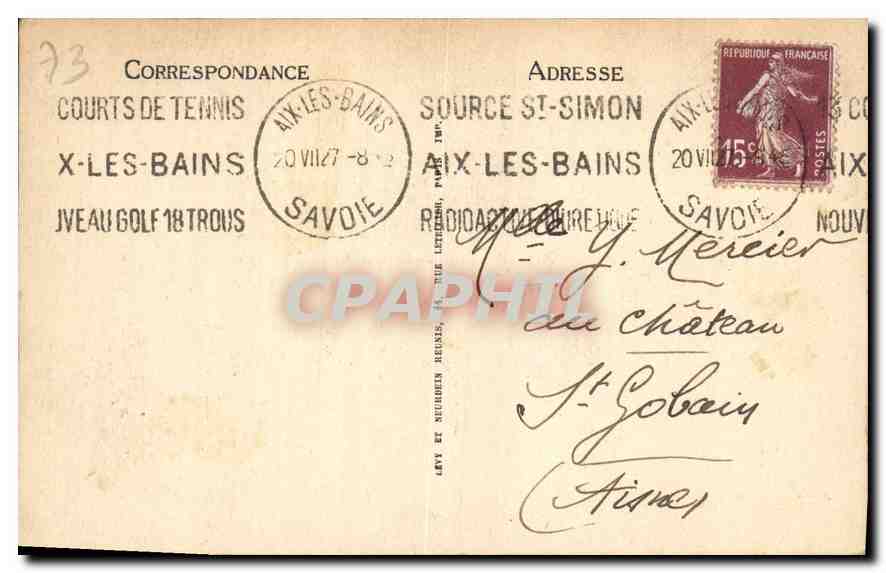 73
CORRESPONDANCE
ADRESSE
COURTS DE TENNIS
X-LES-BAINS
UVEAU GOLF 18 TROUS
AIX-LES-BAINS
20 VII 27 -8
SAVOIE
SOURCE ST-SIMON
AIX-LES-BAINS
AIX-LES-BAINS
20 VII 27
SAVOIE
REPUBLIQUE FRANÇAISE
15c
POSTES
AIX
NOUV
LEVY ET NEURDEIN REUNIS, 44, RUE LETELLIER, PARIS IMP.
CPAPHIL
Mlle Y. Mercier
au Château
St Gobain
(Aisne)